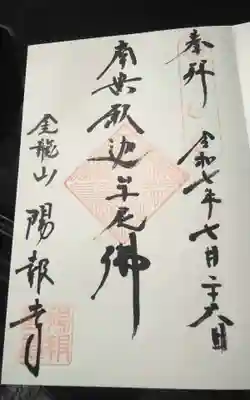 奉拝
令和七年七月二十六日
南無釈迦牟尼佛
金龍山
陽報寺